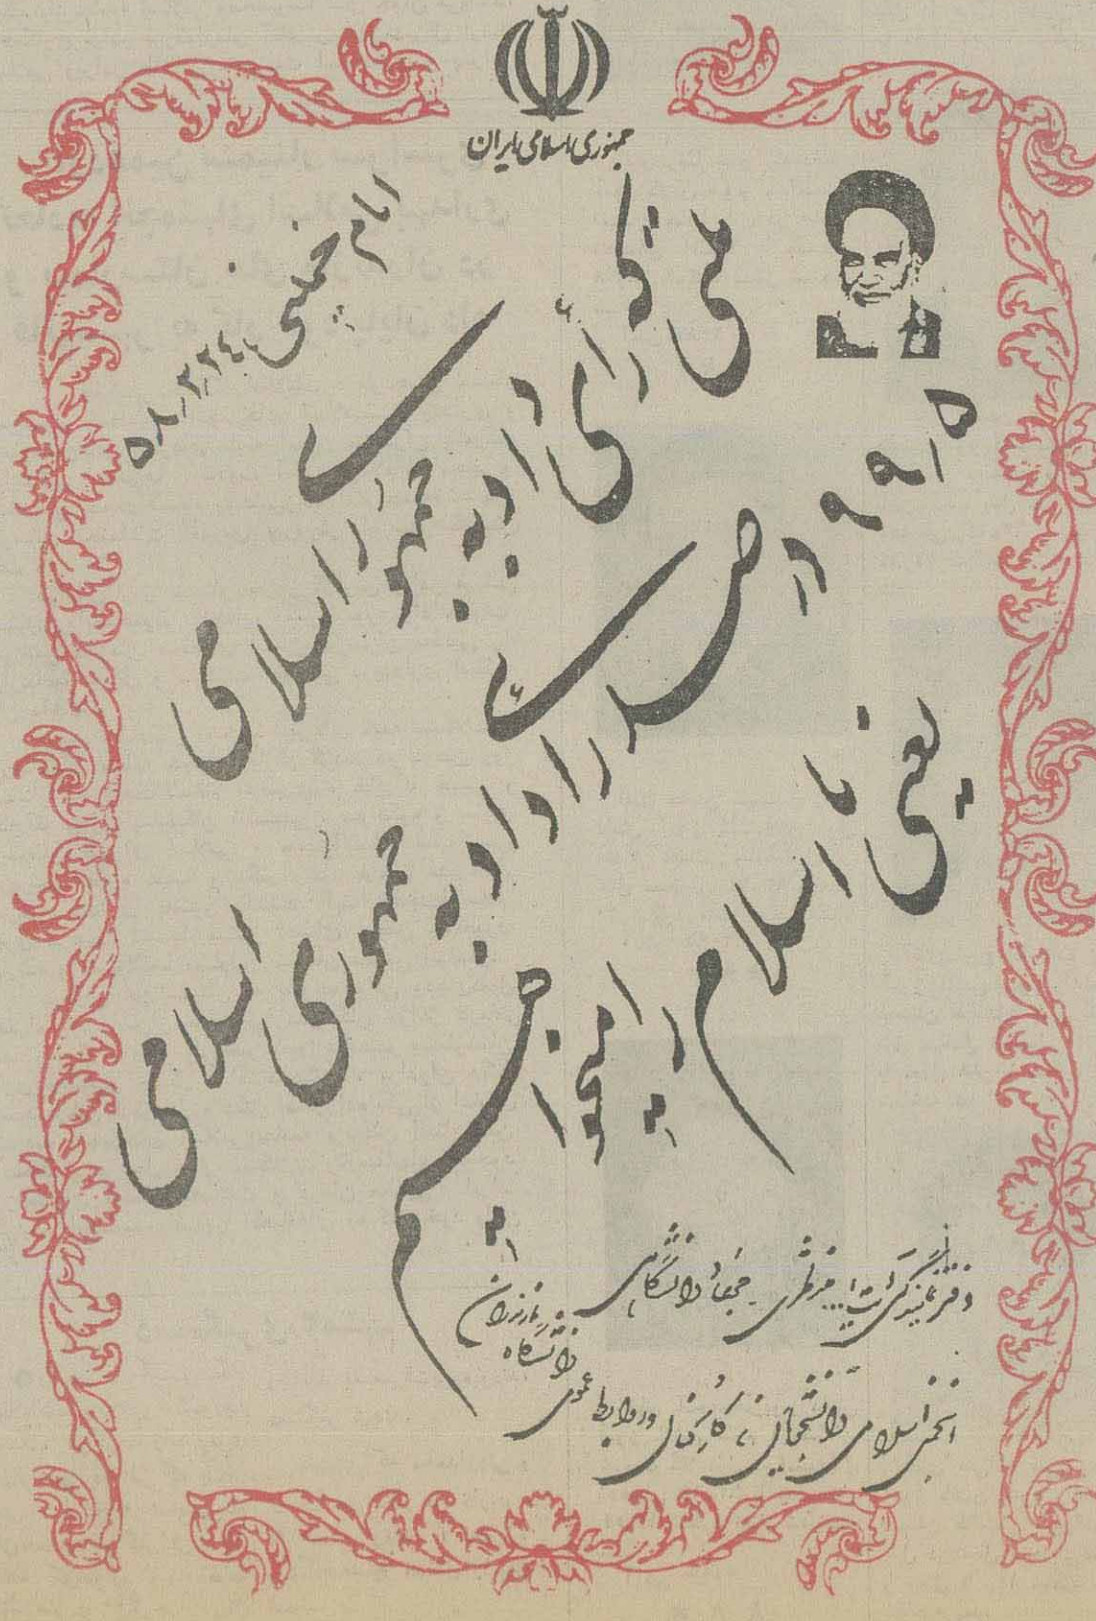 جمهوری اسلامی ایران
ملتی که رأی داد به جمهوری اسلامی
۹۹/۵ درصد رأی داد به جمهوری اسلامی
یعنی ما اسلام را میخواهیم
امام خمینی ۵۸٫۳٫۲۴
دفتر نمایندگی آیت‌الله منتظری جهاد دانشگاهی
انجمن اسلامی دانشجویان، کارکنان و روابط عمومی
دانشگاه مازندران